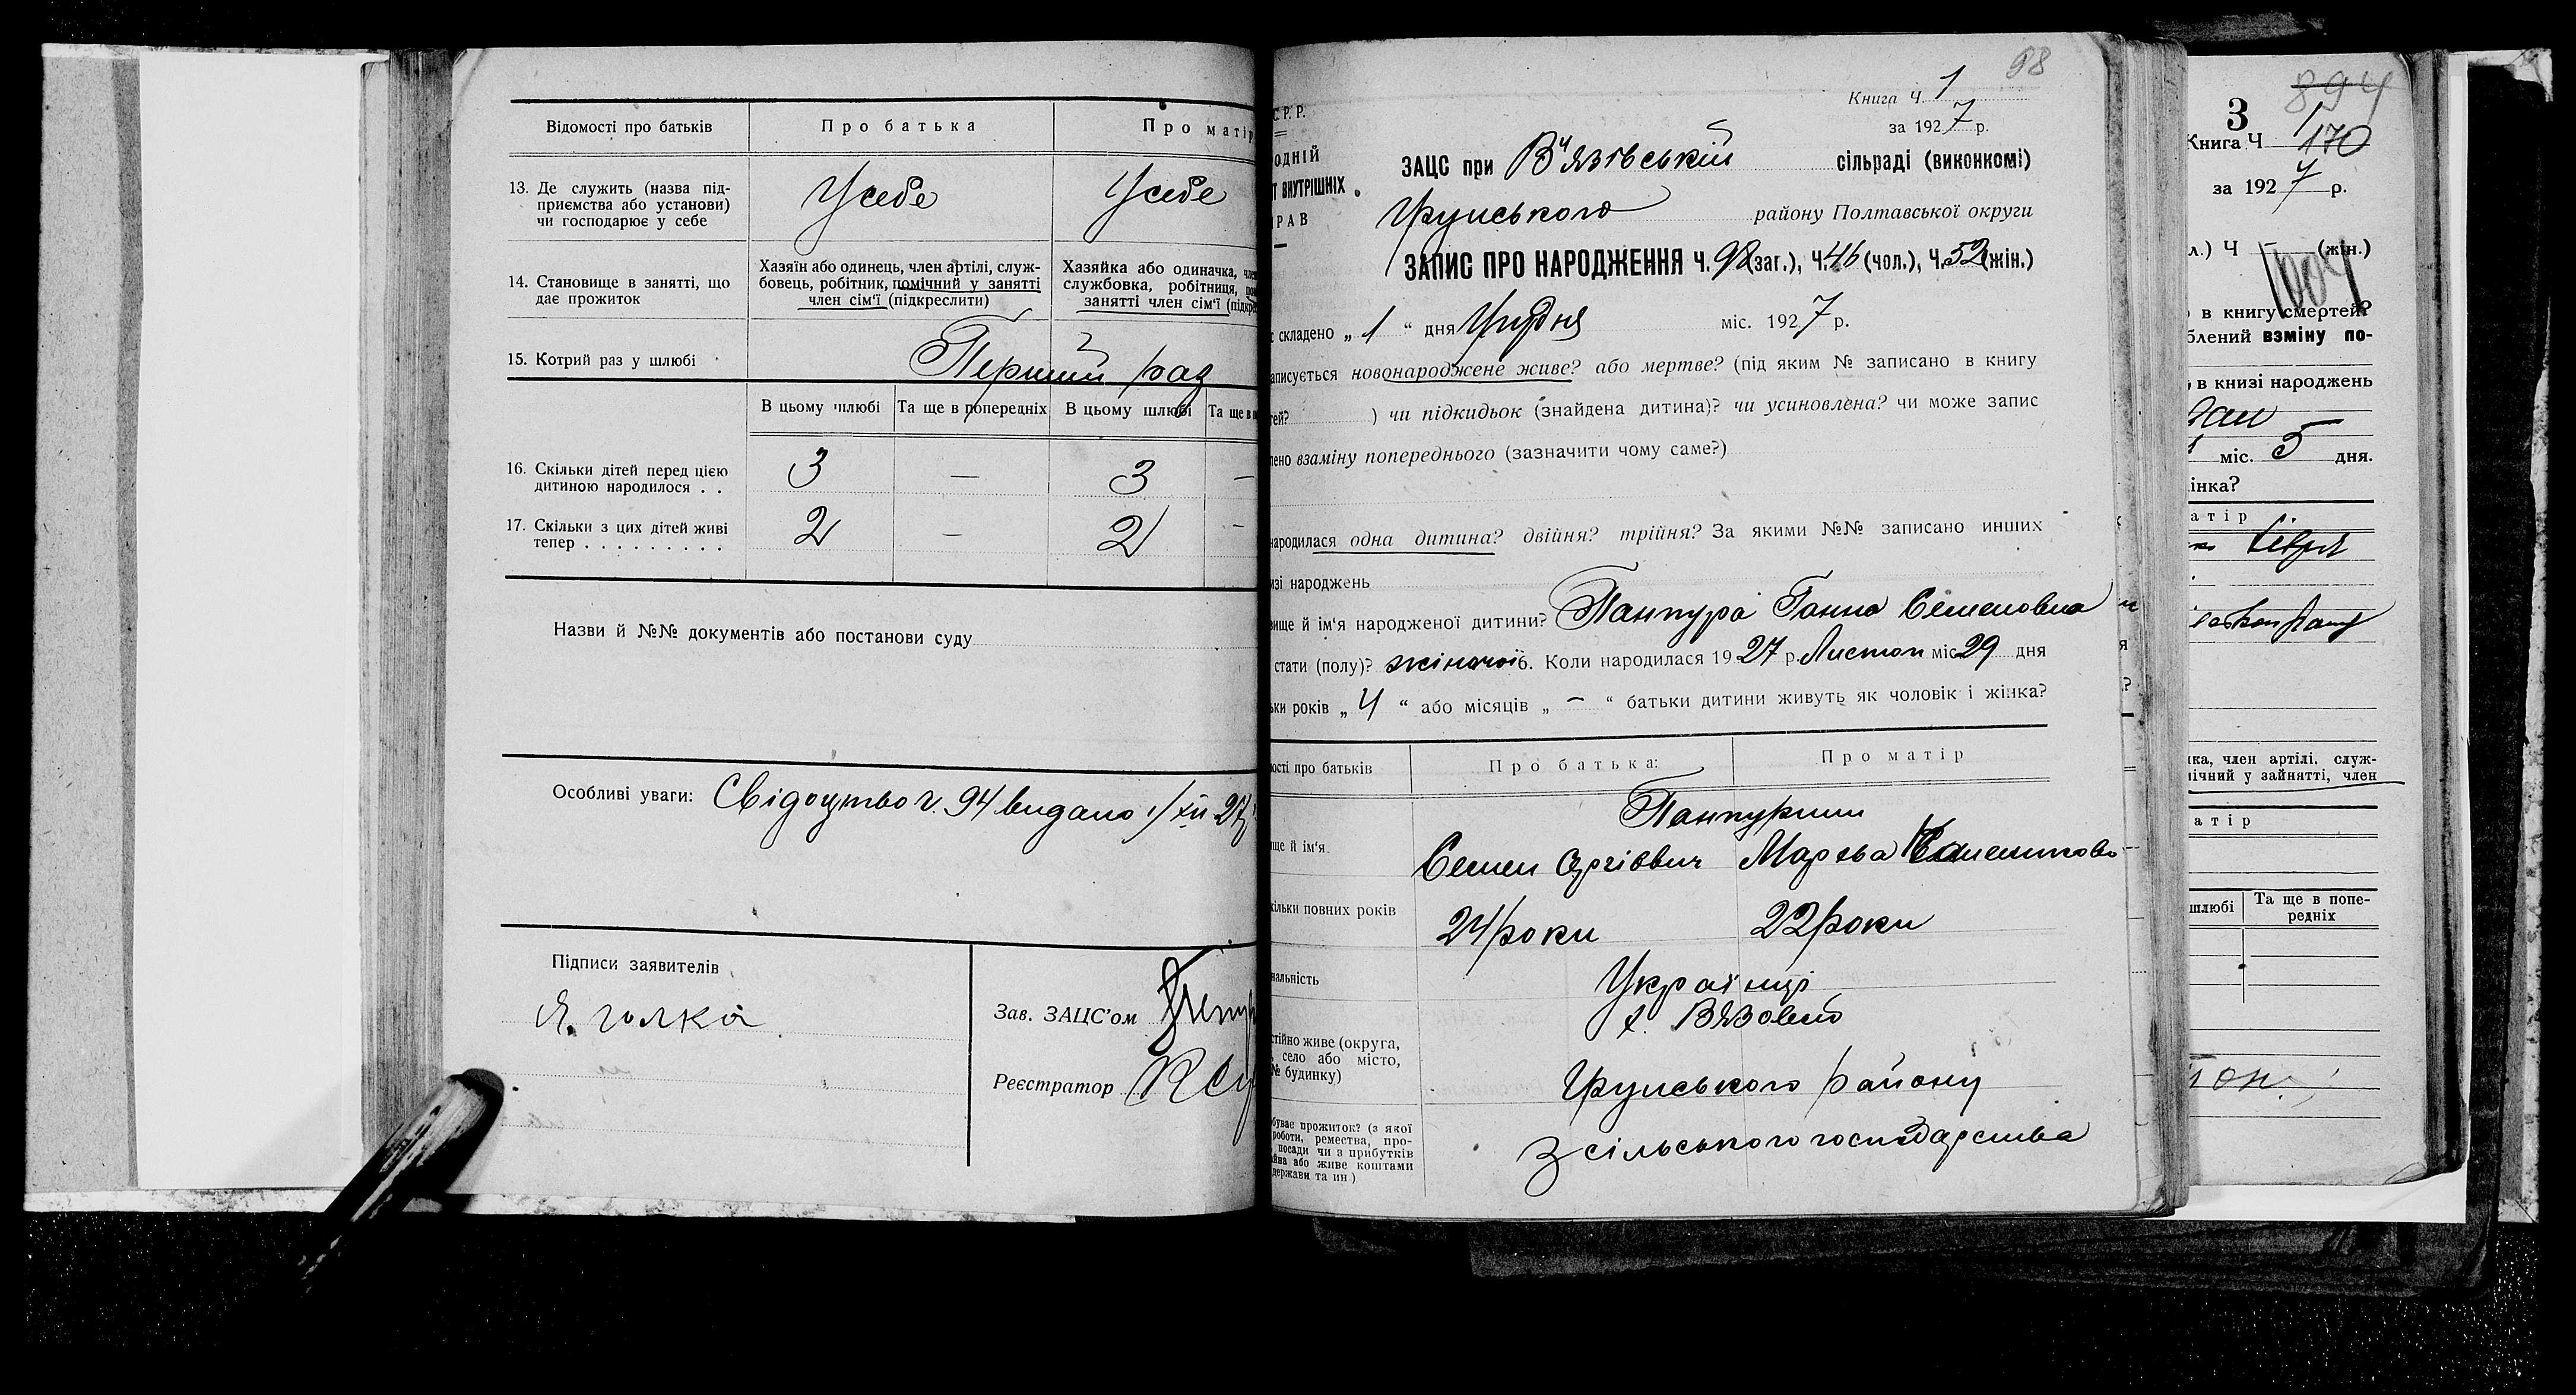 Відомості про батьків
Про батька
Про матір
13. Де служить (назва під-
приємства або установи)
чи господарює у себе
У себе
У себе
14. Становище в занятті, що
дає прожиток
Хазяїн або одинець, член артілі, служ-
бовець, робітник, помічний у занятті
член сім'ї (підкреслити)
Хазяйка або одиначка,
службовка, робітниця,
занятті член сім'ї
15. Котрий раз у шлюбі
Перший раз
В цьому шлюбі
Та ще в попередніх
В цьому шлюбі
Та ще в
16. Скільки дітей перед цією
дитиною народилося . .
3
—
3
—
17. Скільки з цих дітей живі
тепер . . . . . . . . .
2
—
2
—
Назви й №№ документів або постанови суду
Особливі уваги: Свідоцтво ч. 94 видано 1/XII 27
Підписи заявителів
Я. голка
Зав. ЗАЦС'ом
Реєстратор
98
С.Р.Р.
Книга Ч. 1
за 1927 р.
ОДНІЙ
Т ВНУТРІШНІХ
РАВ
ЗАЦС при В'язівській сільраді (виконкомі)
Грунського району Полтавської округи
ЗАПИС ПРО НАРОДЖЕННЯ Ч. 98 (заг.), Ч. 46 (чол.), Ч. 52 (жін.)
складено „ 1 “ дня Грудня міс. 1927 р.
аписується новонароджене живе? або мертве? (під яким № записано в книгу
тей? ) чи підкидьок (знайдена дитина)? чи усиновлена? чи може запис
лено взаміну попереднього (зазначити чому саме?)
народилася одна дитина? двійня? трійня? За якими №№ записано инших
изі народжень
вище й ім'я народженої дитини? Панпура Ганна Семеновна
стати (полу)? жіночої б. Коли народилася 1927 р. Листоп міс 29 дня
ьки років „ 4 “ або місяців „ – “ батьки дитини живуть як чоловік і жінка?
ості про батьків
Про батька:
Про матір
Панпурини
ще й ім'я
Семен Сергієвич
Марєва
кільки повних років
24 роки
22 роки
нальність
Українці
стійно живе (округа,
село або місто,
№ будинку)
х. Вязовець
Грунського району
буває прожиток? (з якої
роботи, ремества, про-
посади чи з прибутків
йва або живе коштами
держави та ин)
З сільського господарства
894
3
1
Книга Ч 170
за 1927 р.
л.) Ч – (жін.)
1004
в книгу смертей?
блений взміну по-
в книзі народжень
міс. 5 дня.
інка?
атір
ка, член артілі, служ-
мічний у зайнятті, член
атір
шлюбі
Та ще в попе-
редніх